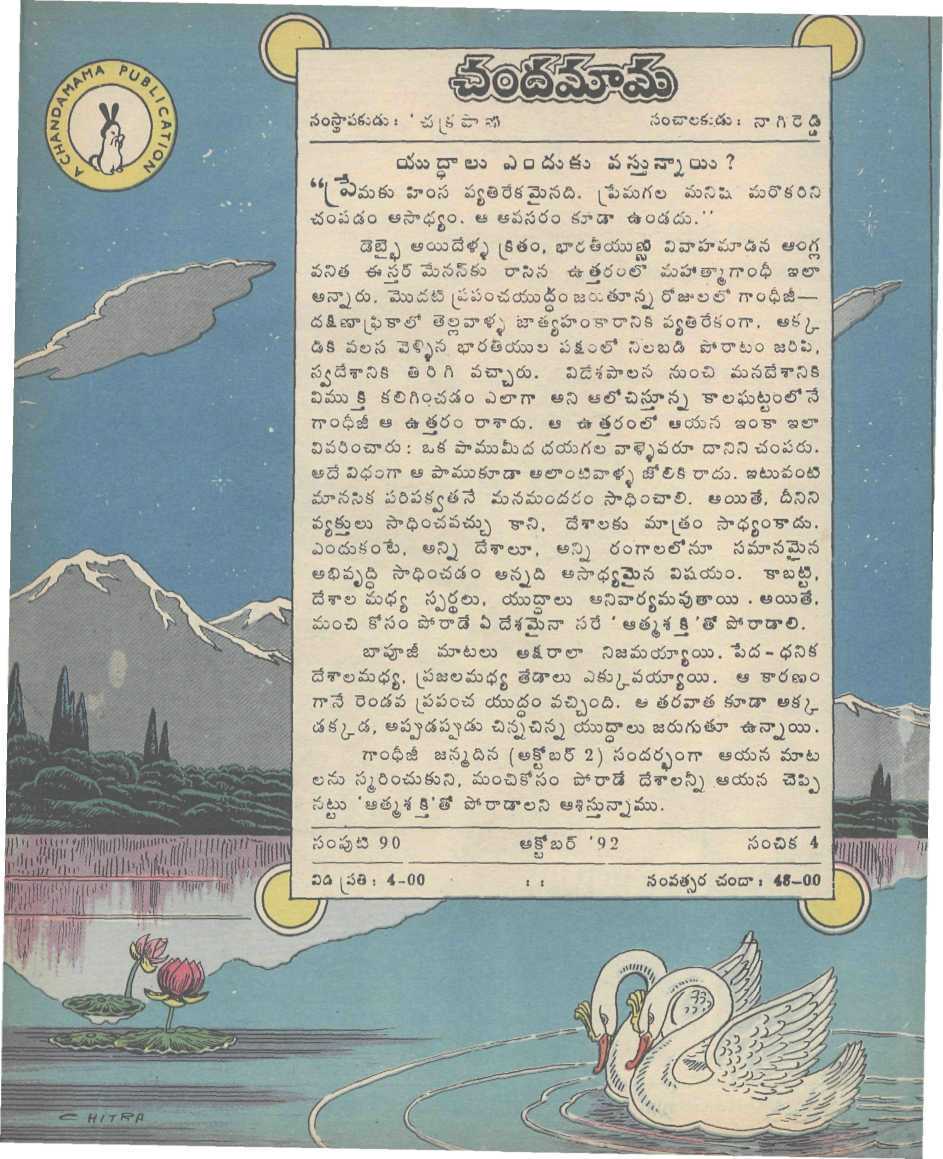 A CHANDAMAMA PUBLICATION
చందమామ
సంస్థాపకుడు : 'చక్రపాణి' సంచాలకుడు : నాగిరెడ్డి
యుద్ధాలు ఎందుకు వస్తున్నాయి ?
“ప్రేమకు హింస వ్యతిరేకమైనది. ప్రేమగల మనిషి మరొకరిని
చంపడం అసాధ్యం. ఆ అవసరం కూడా ఉండదు.''
డెబ్భై అయిదేళ్ళ క్రితం, భారతీయుణ్ణి వివాహమాడిన ఆంగ్ల
వనిత ఈస్తర్ మేనన్‌కు రాసిన ఉత్తరంలో మహాత్మాగాంధీ ఇలా
అన్నారు. మొదటి ప్రపంచయుద్ధం జరుతూన్న రోజులలో గాంధీజీ—
దక్షిణాఫ్రికాలో తెల్లవాళ్ళ జాత్యహంకారానికి వ్యతిరేకంగా, అక్క
డికి వలస వెళ్ళిన భారతీయుల పక్షంలో నిలబడి పోరాటం జరిపి,
స్వదేశానికి తిరిగి వచ్చారు. విదేశపాలన నుంచి మనదేశానికి
విముక్తి కలిగించడం ఎలాగా అని ఆలోచిస్తూన్న కాలఘట్టంలోనే
గాంధీజీ ఆ ఉత్తరం రాశారు. ఆ ఉత్తరంలో ఆయన ఇంకా ఇలా
వివరించారు : ఒక పాముమీద దయగల వాళ్ళెవరూ దానిని చంపరు.
అదేవిధంగా ఆ పాముకూడా అలాంటివాళ్ళ జోలికి రాదు. ఇటువంటి
మానసిక పరిపక్వతనే మనమందరం సాధించాలి. అయితే, దీనిని
వ్యక్తులు సాధించవచ్చు కాని, దేశాలకు మాత్రం సాధ్యంకాదు.
ఎందుకంటే, అన్ని దేశాలూ, అన్ని రంగాలలోనూ సమానమైన
అభివృద్ధి సాధించడం అన్నది అసాధ్యమైన విషయం. కాబట్టి,
దేశాల మధ్య స్పర్థలు, యుద్ధాలు అనివార్యమవుతాయి. అయితే,
మంచి కోసం పోరాడే ఏ దేశమైనా సరే 'ఆత్మశక్తి'తో పోరాడాలి.
బాపూజీ మాటలు అక్షరాలా నిజమయ్యాయి. పేద-ధనిక
దేశాలమధ్య, ప్రజలమధ్య తేడాలు ఎక్కువయ్యాయి. ఆ కారణం
గానే రెండవ ప్రపంచ యుద్ధం వచ్చింది. ఆ తరవాత కూడా అక్క
డక్కడ, అప్పుడప్పుడు చిన్నచిన్న యుద్ధాలు జరుగుతూ ఉన్నాయి.
గాంధీజీ జన్మదిన (అక్టోబర్ 2) సందర్భంగా ఆయన మాట
లను స్మరించుకుని, మంచికోసం పోరాడే దేశాలన్నీ ఆయన చెప్పి
నట్టు 'ఆత్మశక్తి'తో పోరాడాలని ఆశిస్తున్నాము.
సంపుటి 90 అక్టోబర్ '92 సంచిక 4
విడి ప్రతి : 4-00 : : సంవత్సర చందా : 48-00
CHITRA